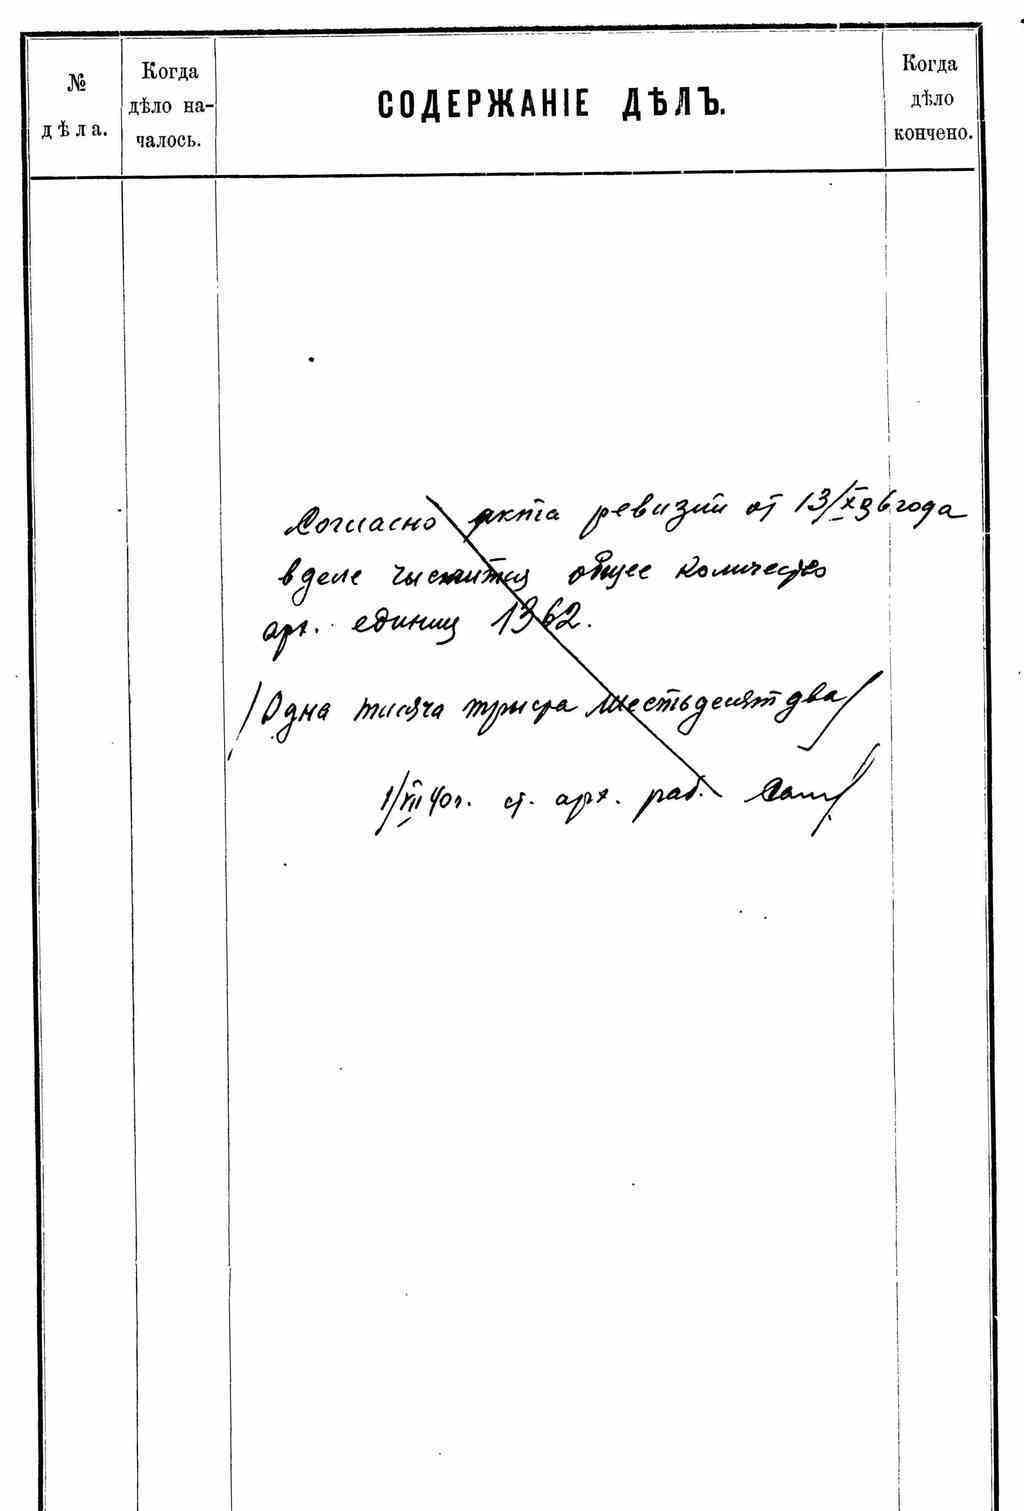 №
дѣла.
Когда
дѣло на-
чалось.
СОДЕРЖАНІЕ ДѢЛЪ.
Когда
дѣло
кончено.
Согласно акта ревизии от 13/X 36 года
в деле числится общее количество
арх. единиц 1362.
/Одна тисяча триста шестьдесят два/
1/VII 40 г. ст. арх. раб.